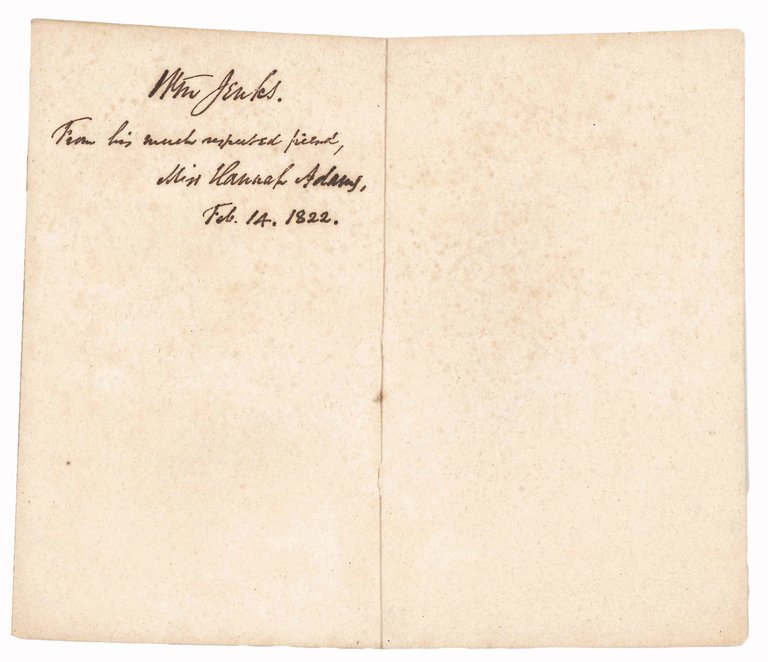 Wm Jenks.
From his much respected friend,
Miss Hannah Adams,
Feb. 14. 1822.